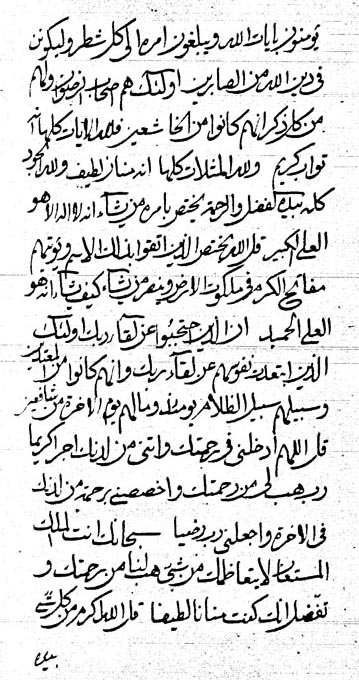 يؤمنون بايات الله ويبلغون امره الى كل شطر وليكونن
في دين الله من الصابرين اولئك هم اصحاب الرضوان ولهم
من كل ذكر انهم كانوا من الخاشعين قل لله الايات كلها انه
تواب كريم ولله المثلات كلها انه منان لطيف ولله الجود
كله بيده الفضل والرحمة يختص بامره من يشاء انه لا اله الا هو
العلي الكبير قل الله يختص الذين اتقوا بذلك الاسم ويؤتيهم
مفاتيح الكرم في ملكوت الارض وينصر من يشاء كيف يشاء انه هو
العلي الحميد ان الذين احتجبوا عن لقاء ربك اولئك
الذين ابتعدت نفوسهم عن لقاء ربك وانهم كانوا من المبعدين
وسبيلهم سبيل الظلام يومئذ وما لهم يوم الاخرة من شافعين
قل اللهم ادخلني في رحمتك واتني من لدنك اجرا كريما
رب هب لي من رحمتك واخصصني برحمة من لدنك
في الاخرة واجعلني رب رضيا سبحانك انت الملك
المستعان لا يتعاظمك من شيء هب لنا من رحمتك و
تفضل انك كنت منانا لطيفا قل الله اكرم من كل شيء
بيده